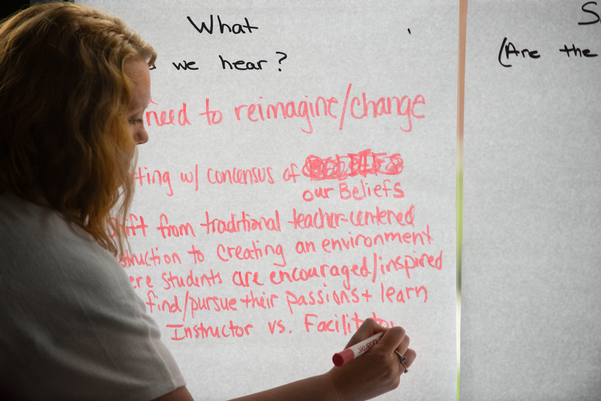 What
we hear?
need to reimagine/change
w/ concensus of
our Beliefs
from traditional teacher-centered
to creating an environment
students are encouraged/inspired
find/pursue their passions + learn
Instructor vs. Facilitator
S
(Are the